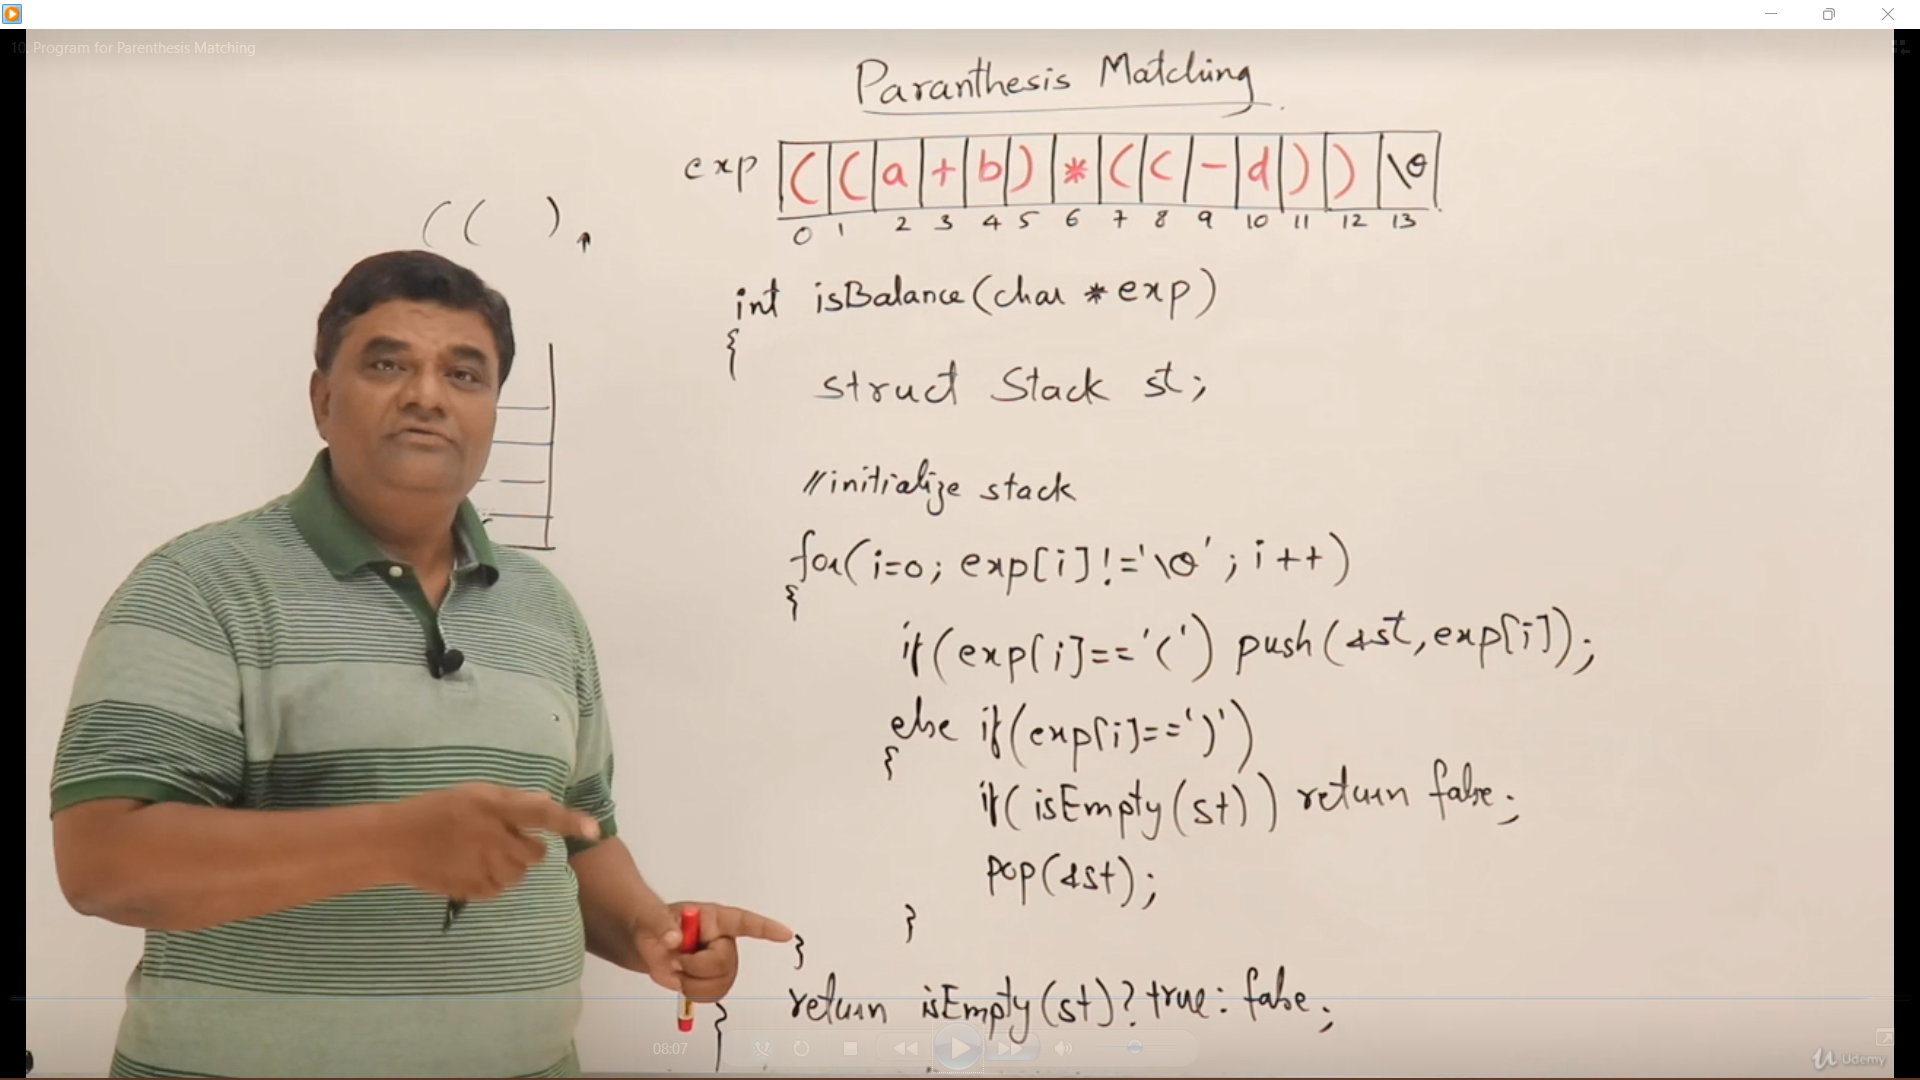 10. Program for Parenthesis Matching
Paranthesis Matching
exp ( ( a + b ) * ( c - d ) ) \0
0 1 2 3 4 5 6 7 8 9 10 11 12 13
( ( )
int isBalance(char *exp)
{
struct Stack st;
//initialize stack
for(i=0; exp[i]!='\0'; i++)
{
if(exp[i]=='(') push(&st,exp[i]);
else if(exp[i]==')')
{
if(isEmpty(st)) return false;
pop(&st);
}
}
return isEmpty(st)? true: false;
}
08:07
Udemy